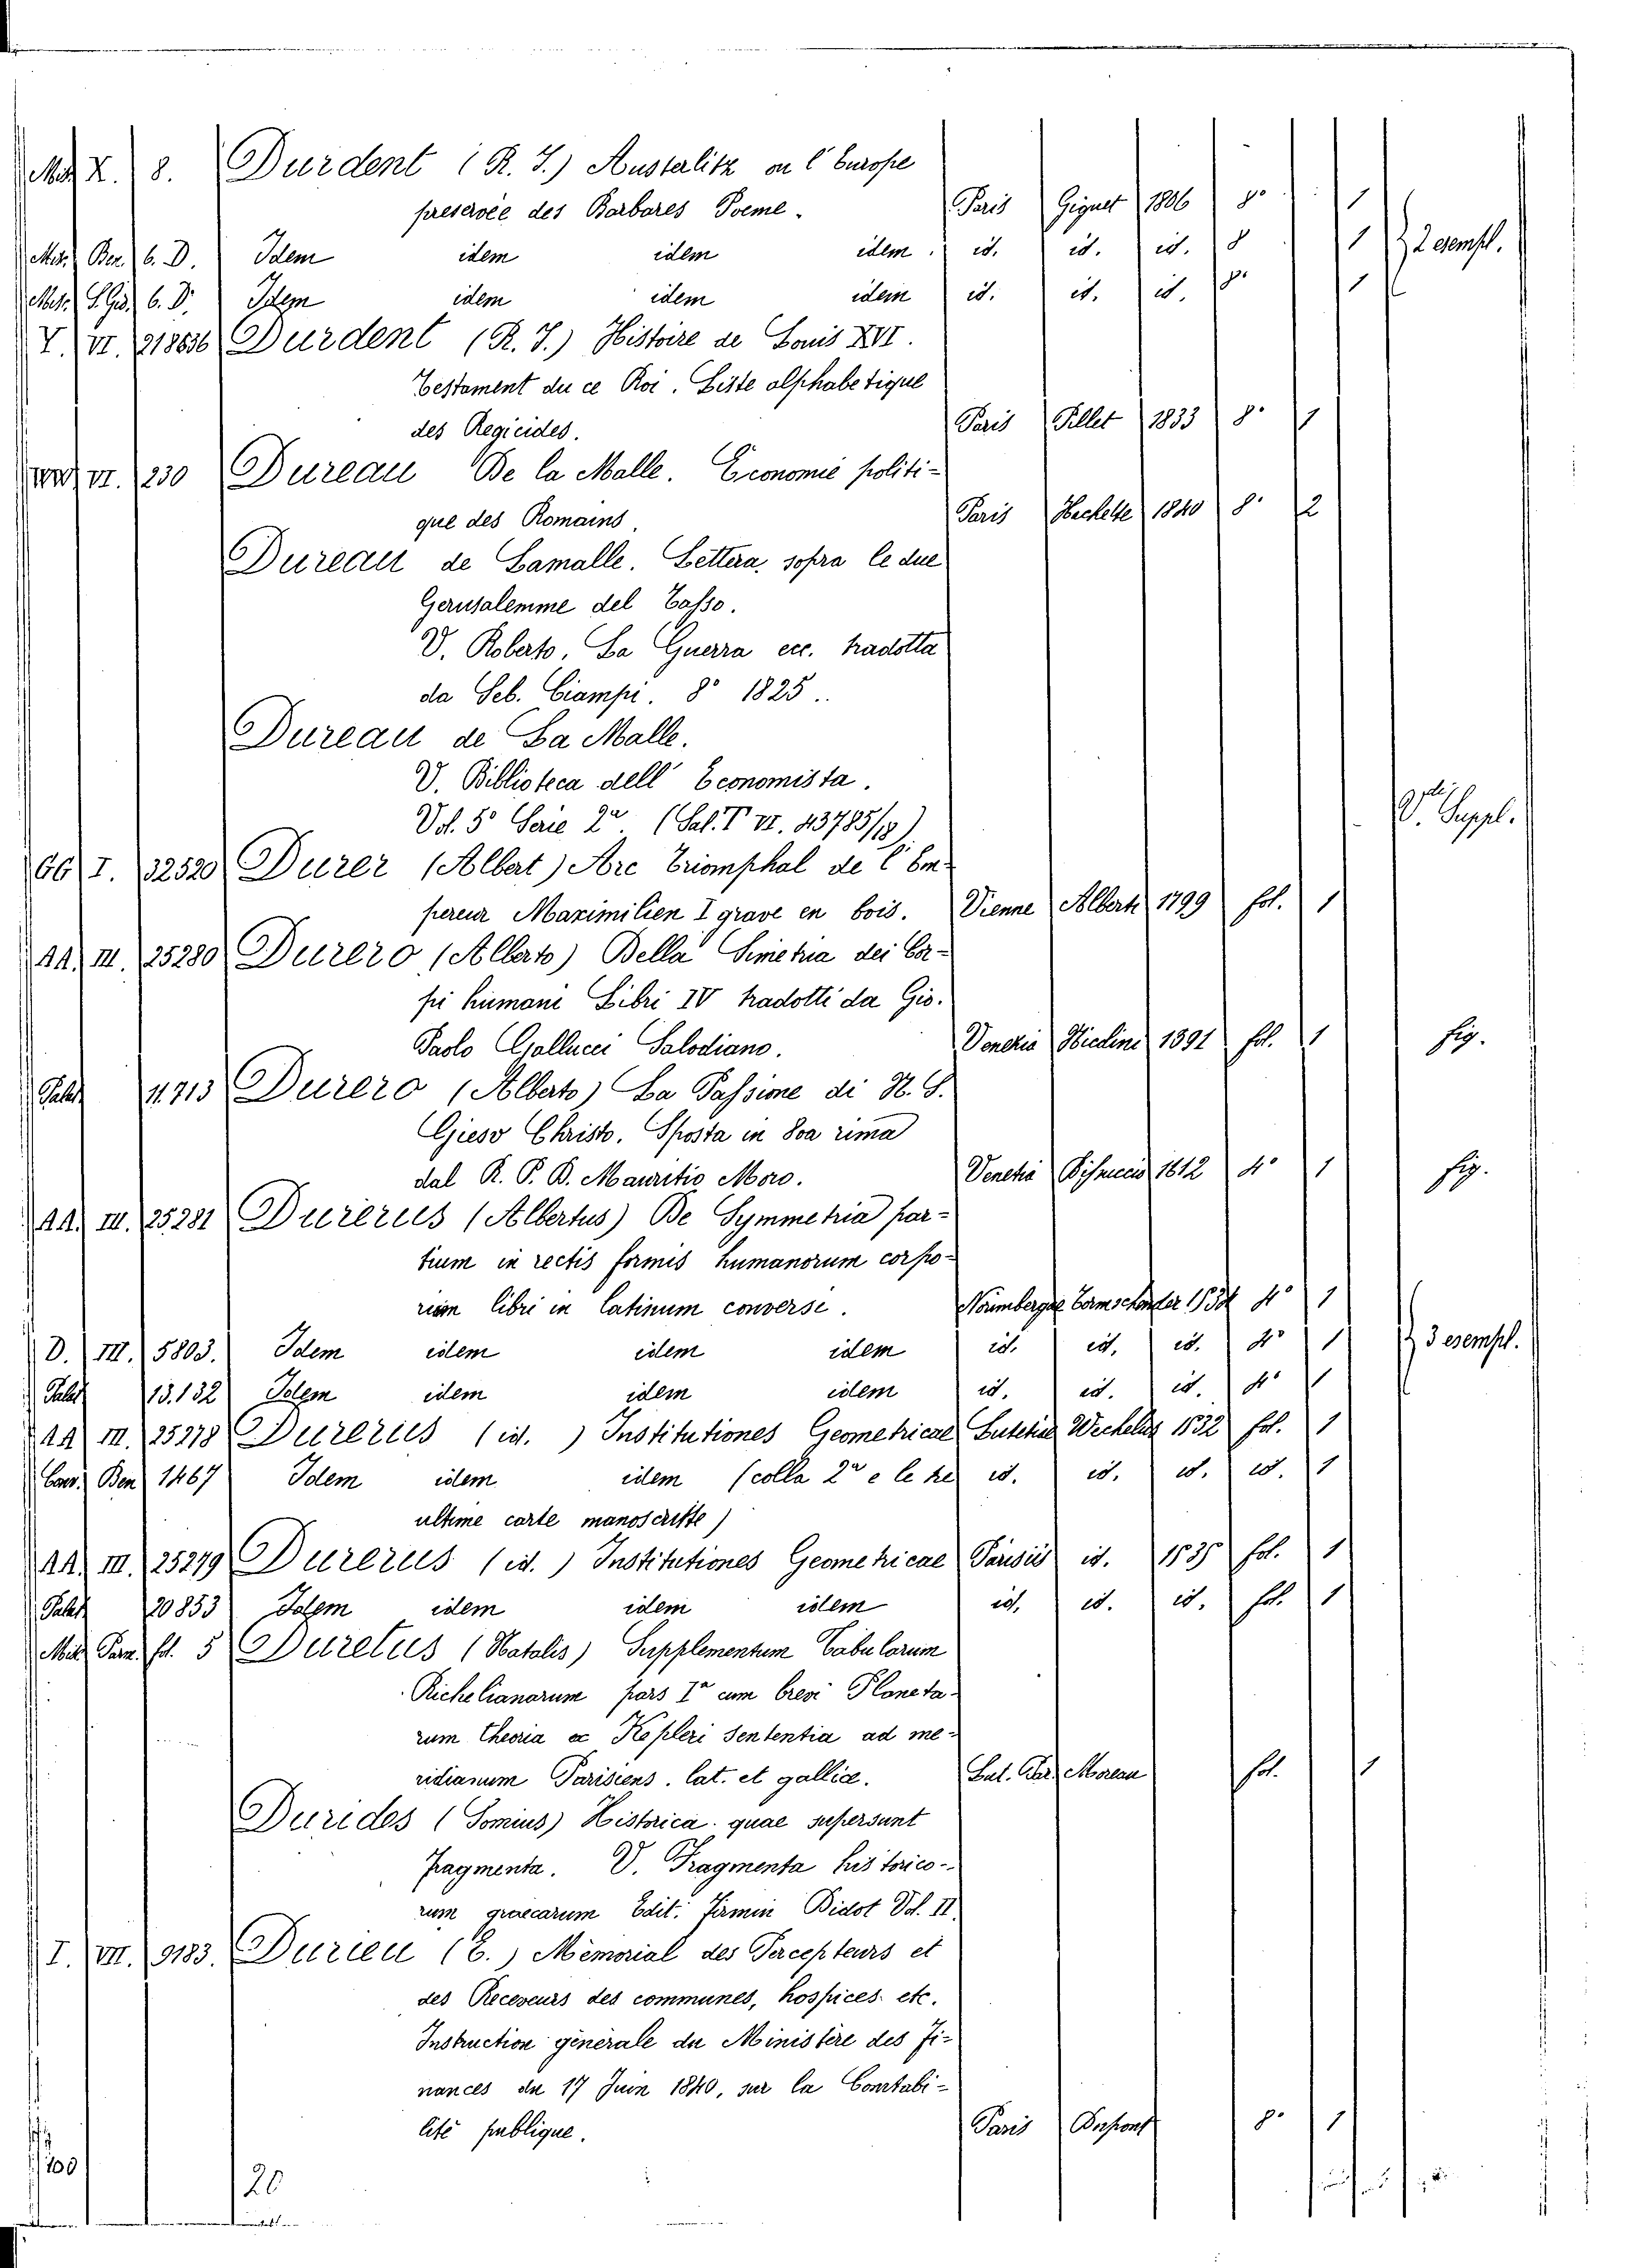 X. 8. Durdent (R. J.) Austerlitz ou l'Europe
preservée des Barbares Poeme. Paris Giguet 1806 8º 1
Misc. Ber. 6. D. Idem idem idem idem. id. id. id. 8 1 2 esempl.
Misc. S. Gio. 6. D. Idem idem idem idem id. id. id. 8º 1
V. VI. 218636 Durdent (R. J.) Histoire de Louis XVI.
Testament du ce Roi. Liste alphabetique
des Regicides. Paris Pillet 1833 8º 1
VI. 230 Dureau De la Malle. Economie politi-
que des Romains. Paris Hachette 1840 8º 2
Dureau de Lamalle. Lettera, sopra le due
Gerusalemme del Tasso.
V. Roberto, La Guerra ecc. tradotta
da Seb. Ciampi. 8º 1825..
Dureau de La Malle.
V. Biblioteca dell' Economista.
Vol. 5º Serie 2ª. (Sal. T VI. 43785/18) V. Suppl.
GG I. 32520 Durer (Albert) Arc Triomphal de l'Em-
pereur Maximilien I grave en bois. Vienne Alberti 1799 fol. 1
AA. III. 25280 Durero (Alberto) Della Simetria dei Cor-
pi humani Libri IV tradotti da Gio.
Paolo Gallucci Salodiano. Venetia Nicolini 1591 fol. 1 fig.
Palat 11.713 Durero (Alberto) La Passione di N. S.
Gieso Christo. Sposta in 8va rima
dal R. P. D. Mauritio Moro. Venetia Bisuccio 1612 4º 1 fig.
AA. III. 25281 Durerus (Albertus) De Symmetria par-
tium in rectis formis humanorum corpo-
rum libri in latinum conversi. Nurimbergae Formschender 1534 4º 1
D. III. 5803. Idem idem idem idem id. id. id. 4º 1 3 esempl.
Palat 13.132 Idem idem idem idem id. id. id. 4º 1
AA III. 25278 Durerus (id.) Institutiones Geometricae Lutetiae Wechelus 1532 fol. 1
Ben 1467 Idem idem idem (colla 2ª e le tre id. id. id. id. 1
ultime carte manoscritte)
AA. III. 25279 Durerus (id.) Institutiones Geometricae Parisiis id. 1535 fol. 1
Palat 20853 Idem idem idem idem id. id. id. fol. 1
Misc. Parm. fol. 5 Duretus (Natalis) Supplementum Tabularum
Richelianarum pars Iª cum brevi Planeta-
rum theoria ex Kepleri sententia ad me-
ridianum Parisiens. lat. et gallice. Lut. Par. Moreau fol. 1
Durides (Somius) Historica quae supersunt
Fragmenta. V. Fragmenta historico-
rum graecarum Edit. Firmin Didot Vol. II.
I. VII. 9183. Durieu (E.) Mémorial des Percepteurs et
des Receveurs des communes, hospices etc.
Instruction générale du Ministère des Fi-
nances du 17 Juin 1840, sur la Comtabi-
lité publique. Paris Dupont 8º 1
20